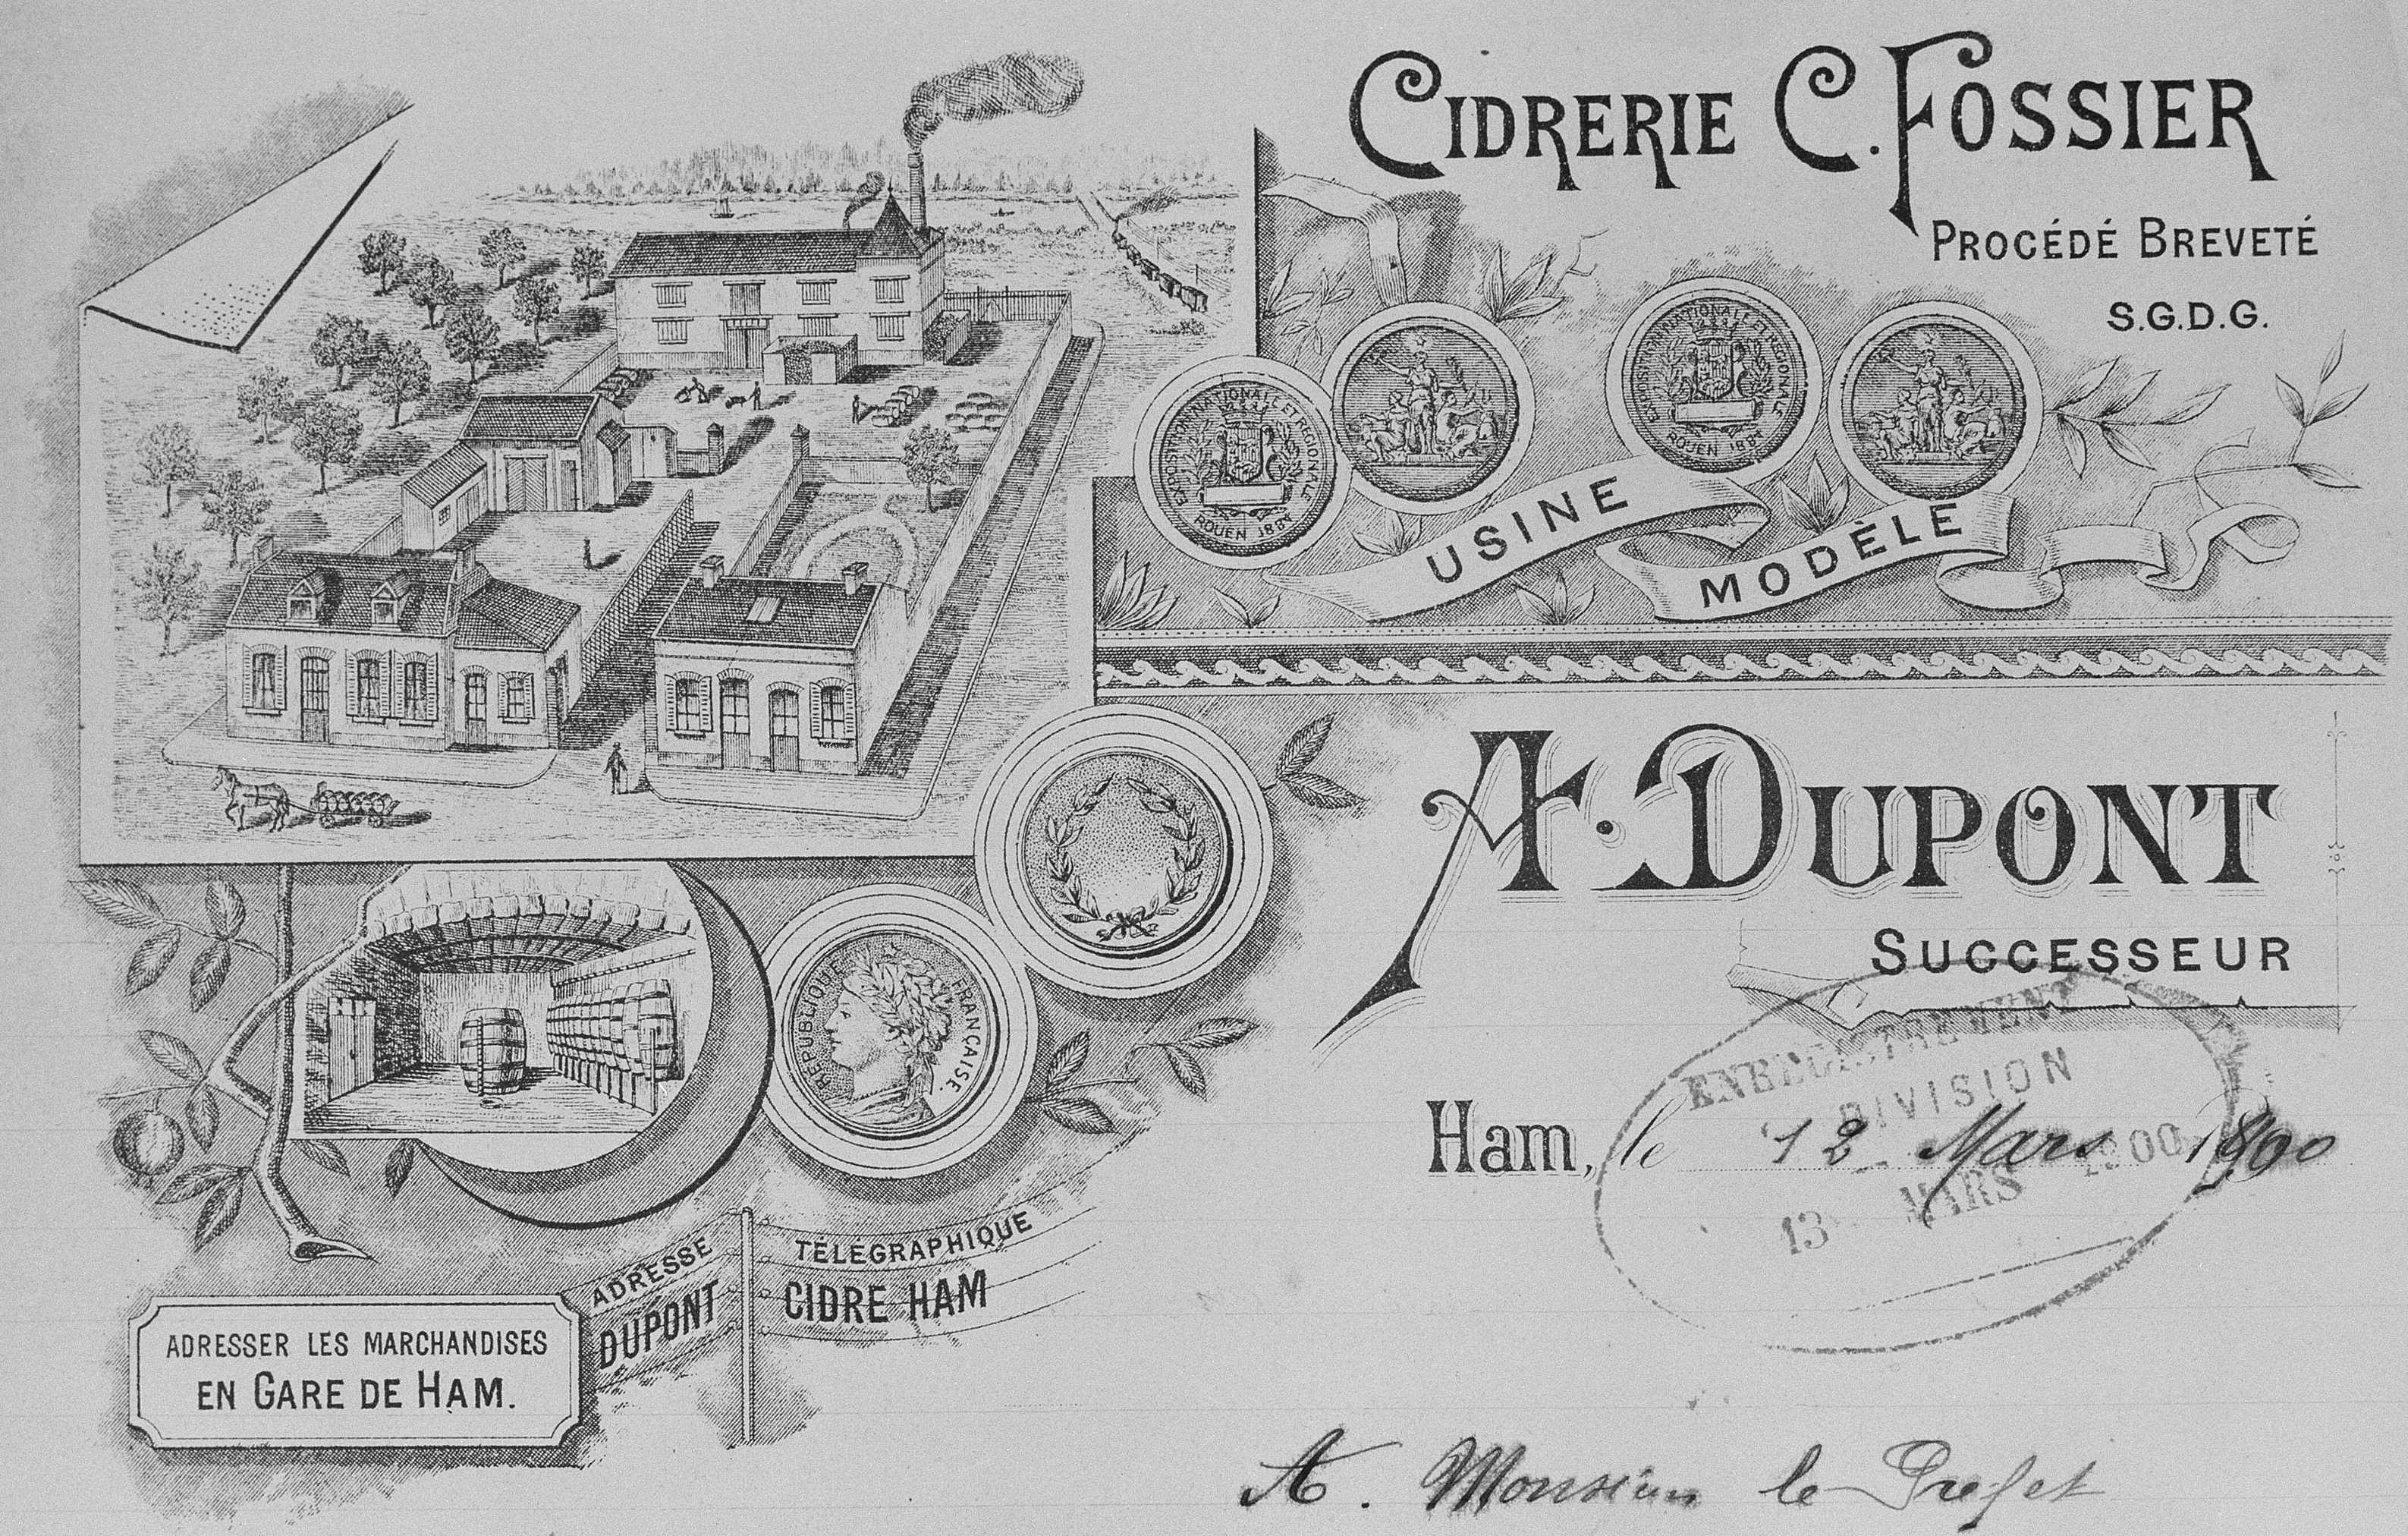 CIDRERIE C. FOSSIER
PROCÉDÉ BREVETÉ
S.G.D.G.
EXPOSITION NATIONALE ET REGIONALE
ROUEN 1884
EXPOSITION NATIONALE ET REGIONALE
ROUEN 1884
USINE
MODÈLE
A. DUPONT
SUCCESSEUR
RÉPUBLIQUE FRANÇAISE.
ENREGISTREMENT
DIVISION
13 MARS 1900
Ham, le 12 Mars 1900
ADRESSE TÉLÉGRAPHIQUE
DUPONT CIDRE HAM
ADRESSER LES MARCHANDISES
EN GARE DE HAM.
A. Monsieur le Prefet